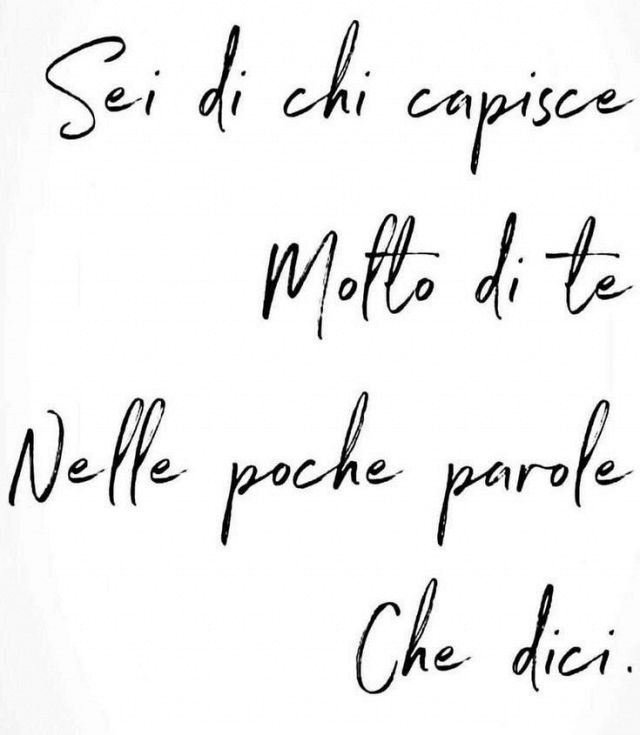 Sei di chi capisce
Molto di te
Nelle poche parole
Che dici.